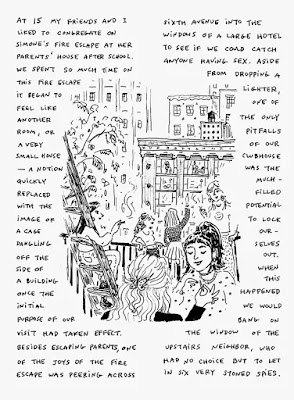 AT 15 MY FRIENDS AND I
LIKED TO CONGREGATE ON
SIMONE'S FIRE ESCAPE AT HER
PARENTS' HOUSE AFTER SCHOOL.
WE SPENT SO MUCH TIME ON
THIS FIRE ESCAPE
IT BEGAN TO
FEEL LIKE
ANOTHER
ROOM, OR
A VERY
SMALL HOUSE
— A NOTION
QUICKLY
REPLACED
WITH THE
IMAGE OF
A CAGE
DANGLING
OFF THE
SIDE OF
A BUILDING
ONCE THE
INITIAL
PURPOSE OF OUR
VISIT HAD TAKEN EFFECT.
BESIDES ESCAPING PARENTS, ONE
OF THE JOYS OF THE FIRE
ESCAPE WAS PEERING ACROSS
SIXTH AVENUE INTO THE
WINDOWS OF A LARGE HOTEL
TO SEE IF WE COULD CATCH
ANYONE HAVING SEX. ASIDE
FROM DROPPING A
LIGHTER,
ONE OF
THE ONLY
PITFALLS
OF OUR
CLUBHOUSE
WAS THE
MUCH -
FILLED
POTENTIAL
TO LOCK
OUR -
SELVES
OUT.
WHEN
THIS
HAPPENED
WE WOULD
BANG ON
THE WINDOW OF THE
UPSTAIRS NEIGHBOR, WHO
HAD NO CHOICE BUT TO LET
IN SIX VERY STONED SPIES.